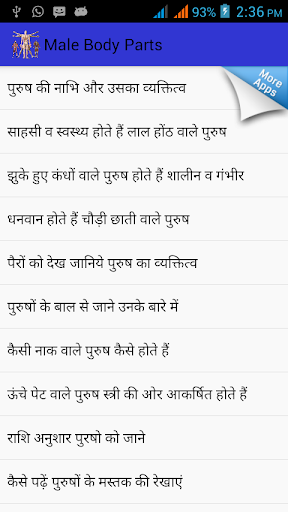 93%
93%
2:36 PM
Male Body Parts
More
Apps
पुरुष की नाभि और उसका व्यक्तित्व
साहसी व स्वस्थ्य होते हैं लाल होंठ वाले पुरुष
झुके हुए कंधों वाले पुरुष होते हैं शालीन व गंभीर
धनवान होते हैं चौड़ी छाती वाले पुरुष
पैरों को देख जानिये पुरुष का व्यक्तित्व
पुरुषों के बाल से जाने उनके बारे में
कैसी नाक वाले पुरुष कैसे होते हैं
ऊंचे पेट वाले पुरुष स्त्री की ओर आकर्षित होते हैं
राशि अनुशार पुरषो को जाने
कैसे पढ़ें पुरुषों के मस्तक की रेखाएं